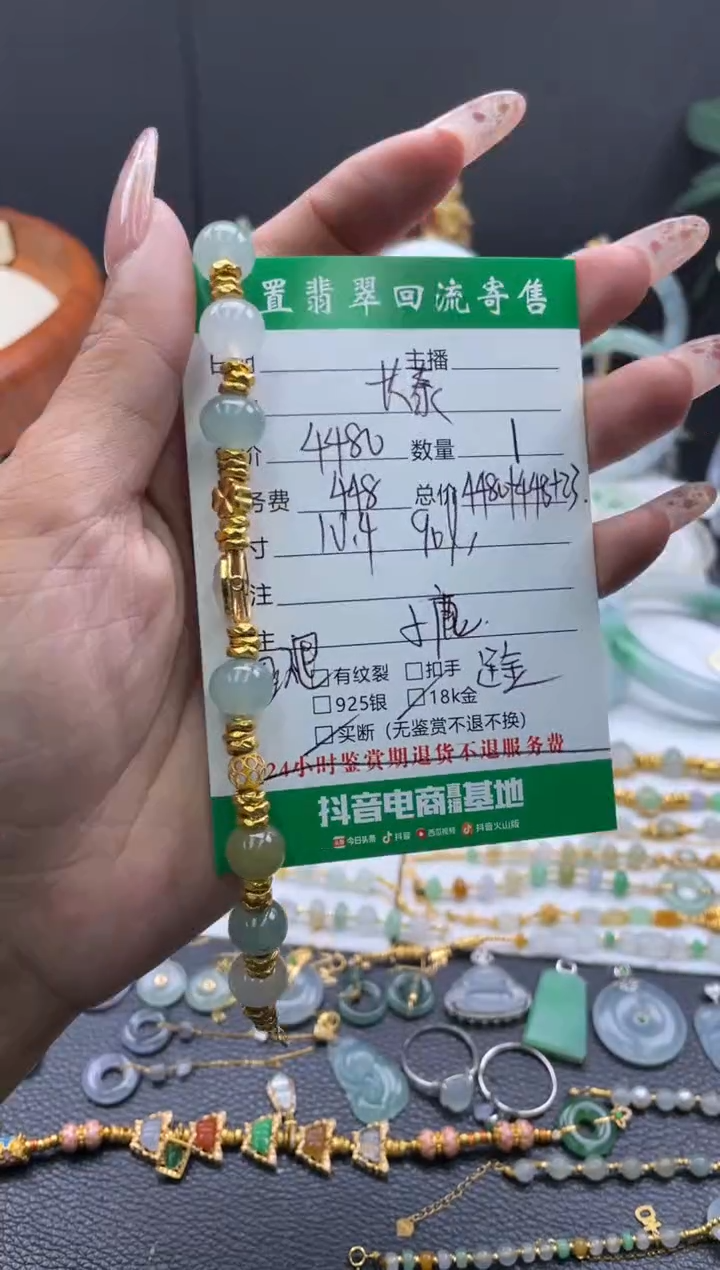 置翡翠回流寄售
主播
价 4480 数量 1
务费 448 总价 4480+448+23.
寸 10.4 90%
注
主
有纹裂 扣手 送金
925银 18k金
买断（无鉴赏不退不换）
24小时鉴赏期退货不退服务费
抖音电商直播基地
今日头条 抖音 西瓜视频 抖音火山版